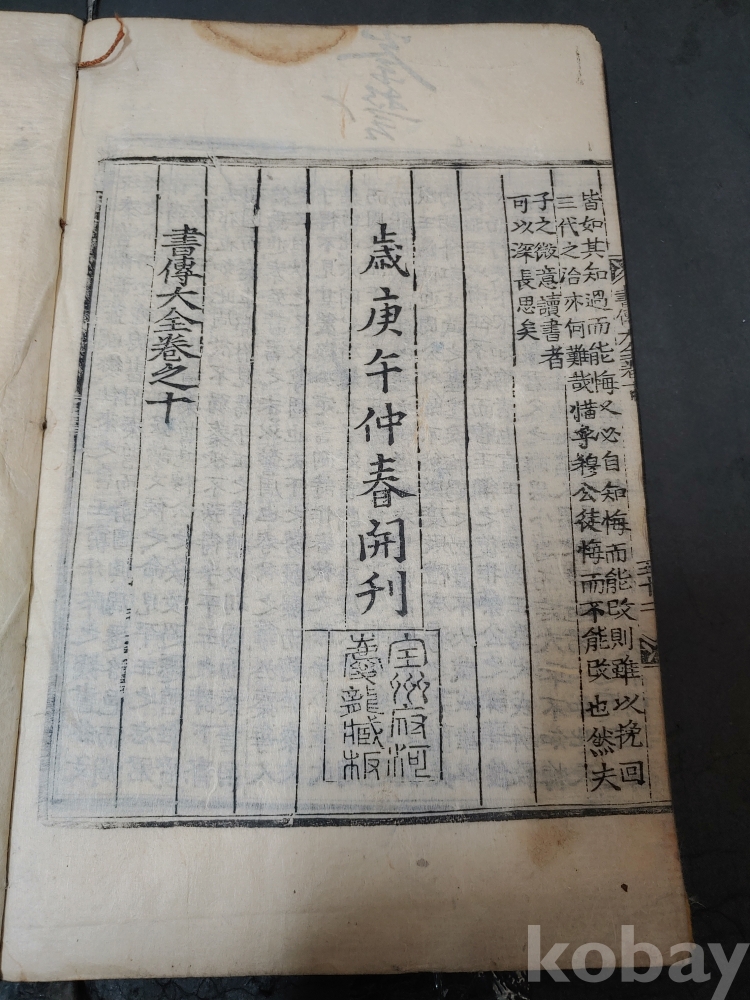 皆如其知過而能悔又必自知悔而能改則雖以挽回
三代之治亦何難哉惜乎穆公徒悔而不能改也然夫
子之微意讀書者
可以深長思矣
歲庚午仲春開刊
全州府河
慶龍藏板
書傳大全卷之十
kobay